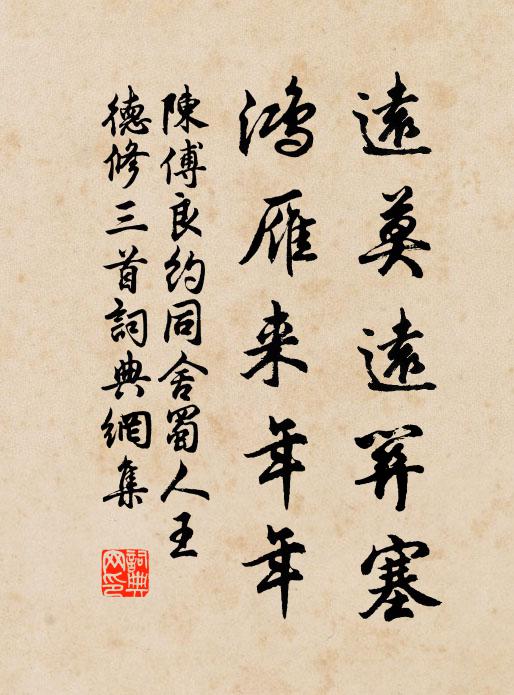 遠莫遠關塞
鴻雁来年年
陳傅良約同舍蜀人王
德修三首詞典網集
詞典网印